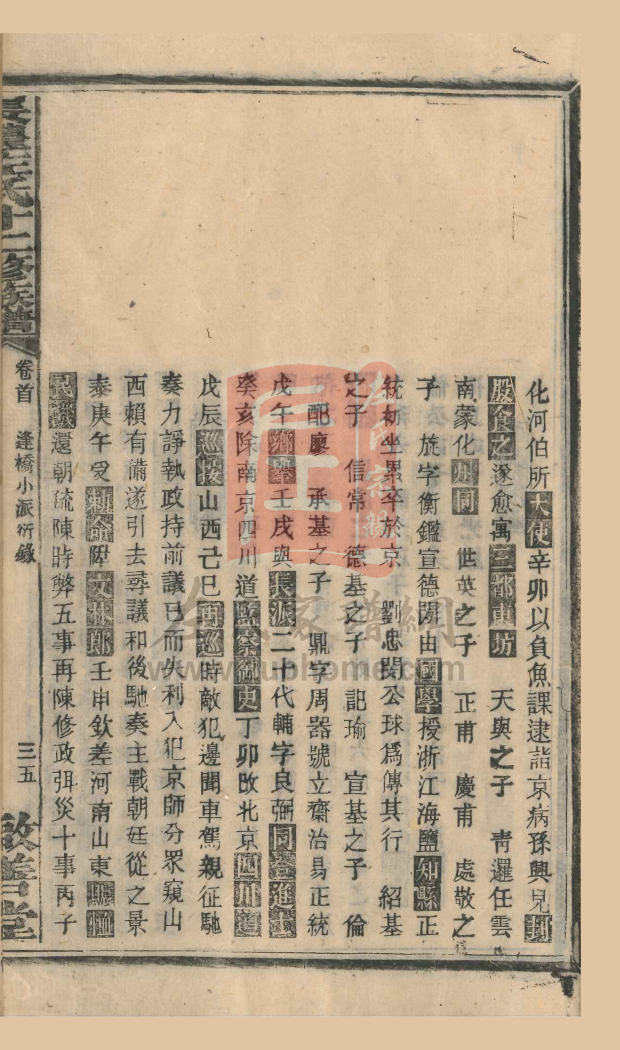 化河伯所大使辛卯以負魚課逮詣京病孫興兒封
股食之遂愈寓三都東坊 天與之子 靑邏任雲
南蒙化州同 世英之子 正甫 慶甫 處敬之
子 旄字衡鑑宣德閒由國學授浙江海鹽知縣正
統初坐累卒於京 劉忠閔公球爲傳其行 紹基
之子 信常 德基之子 記瑜 宣基之子 倫
配廖 承基之子 鼎字周器號立齋治易正統
戊午鄉舉壬戌與長派二十代輔字良弼同登進士
癸亥除南京四川道監察御史丁卯改北京四川道
戊辰巡按山西己巳再巡時敵犯邊聞車駕親征馳
奏力諍執政持前議已而失利入犯京師分眾窺山
西賴有備遂引去尋議和後馳奏主戰朝廷從之景
泰庚午受勑命陞文林郎壬申欽差河南山東賑恤
還朝疏陳時弊五事再陳修政弭災十事丙子
氏十二修族譜
卷首 逢橋小派衍錄
三五
敦善堂
人家譜網
www.jiapuhome.com